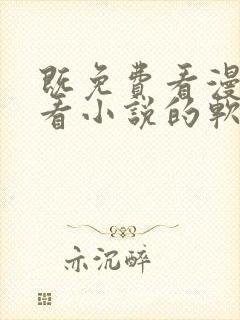 既免費看漫
看小説的軟
亦沉醉